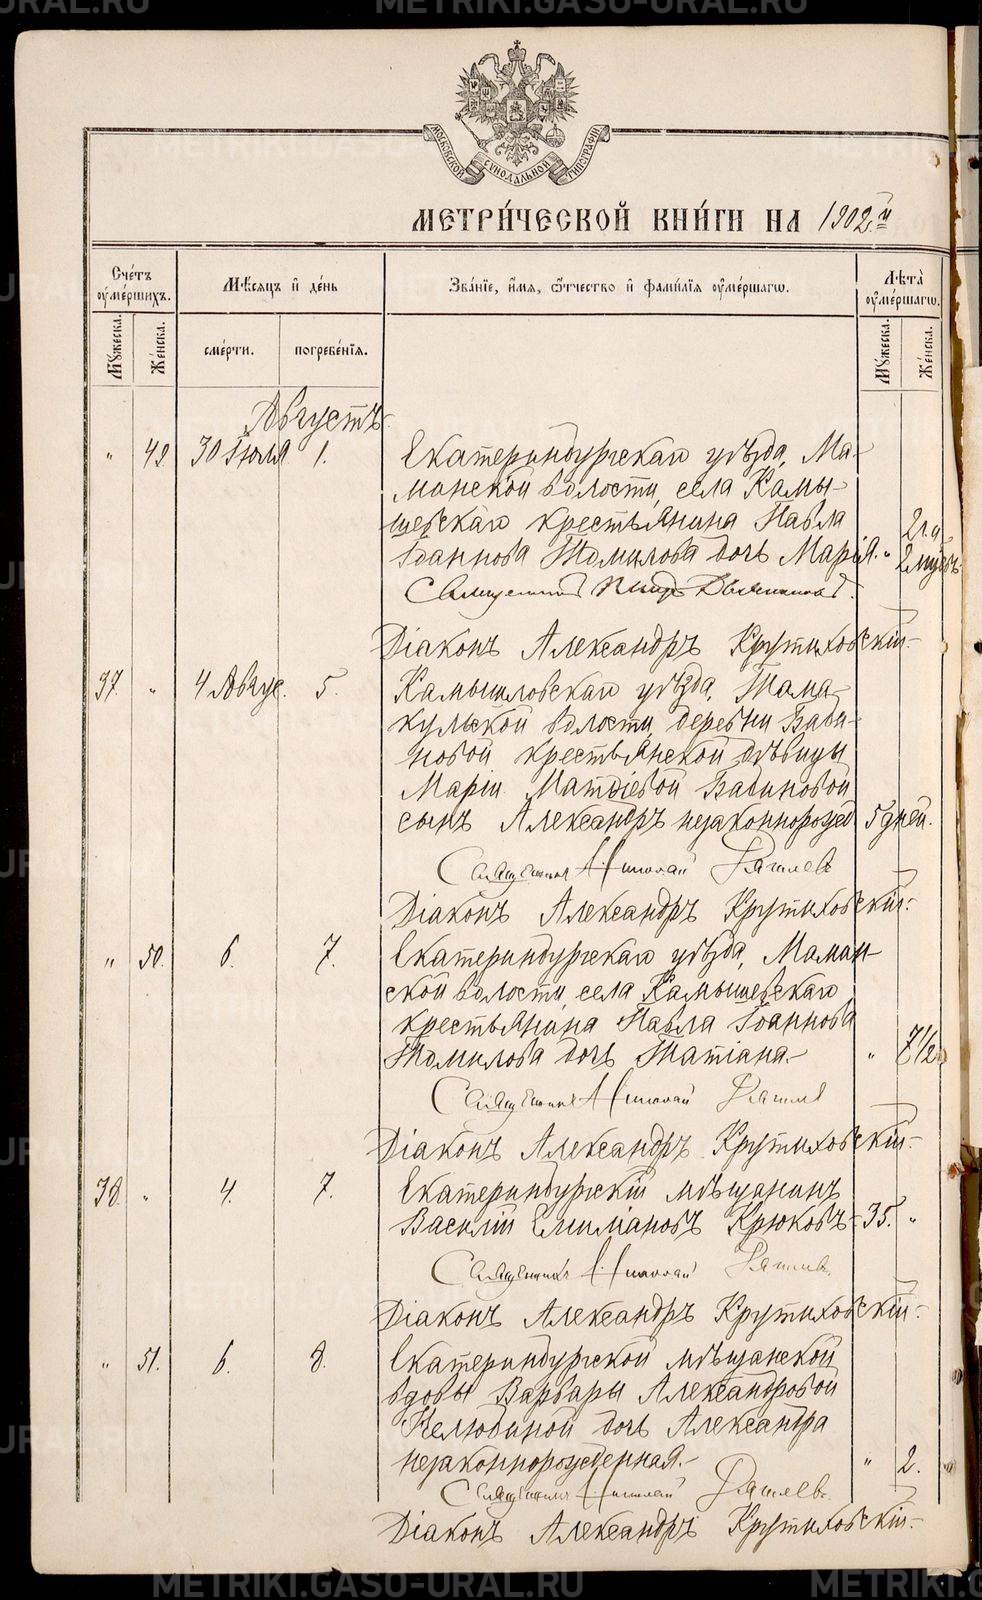 МОСКОВСКОЙ СУНОДАЛЬНОЙ ТИПОГРАФІИ
МЕТРИ́ЧЕСКОЙ КНИ́ГИ НА 1902 й
Счетъ оумершихъ.
Мѣсяцъ и день
Званіе, имя, отчество и фамилія оумершагѡ.
Лѣта оумершагѡ.
Мужеска.
Женска.
смерти.
погребенія.
Мужеска.
Женска.
Августъ.
" 49. 30 Іюля 1. Екатеринбургскаго уѣзда, Ма-
минской волости, села Камы-
шевскаго крестьянина Павла 2 г. и
Іоаннова Томилова дочь Марія. " 2 мѣс.
Священникъ
Діаконъ Александръ Крутиховскій.
37. " 4 Авгус. 5. Камышловскаго уѣзда, Тама-
кульской волости, деревни Баби-
новой крестьянской дѣвицы
Маріи Матѳіевой Бабиновой
сынъ Александръ незаконнорожд. 5 дней.
Священникъ Николай
Діаконъ Александръ Крутиховскій.
" 50. 6. 7. Екатеринбургскаго уѣзда, Мамин-
ской волости, села Камышевскаго
крестьянина Павла Іоаннова
Томилова дочь Татіана. " 7 1/2
Священникъ Николай
Діаконъ Александръ Крутиховскій.
38. " 4. 7. Екатеринбургскій мѣщанинъ
Василій Емиліановъ Крюковъ 35. "
Священникъ Николай
Діаконъ Александръ Крутиховскій.
" 51. 6. 8. Екатеринбургской мѣщанской
вдовы Варвары Александровой
Нелюбиной дочь Александра
незаконнорожденная. " 2.
Священникъ Николай
Діаконъ Александръ Крутиховскій.
METRIKI.GASO-URAL.RU